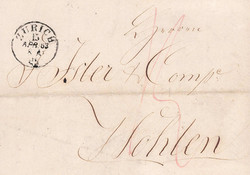 ZÜRICH
15
APR. 63
Isler & Comp.
Wohlen